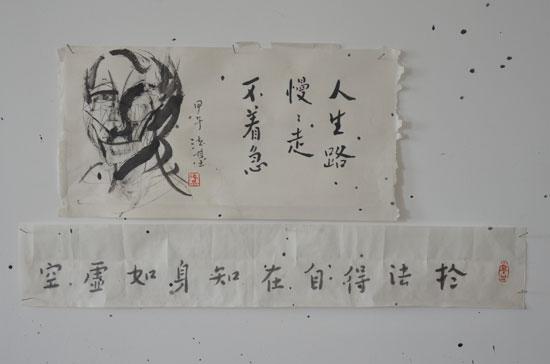 人生路.
慢:走
不着急
甲午
於法得自在知身如虛空